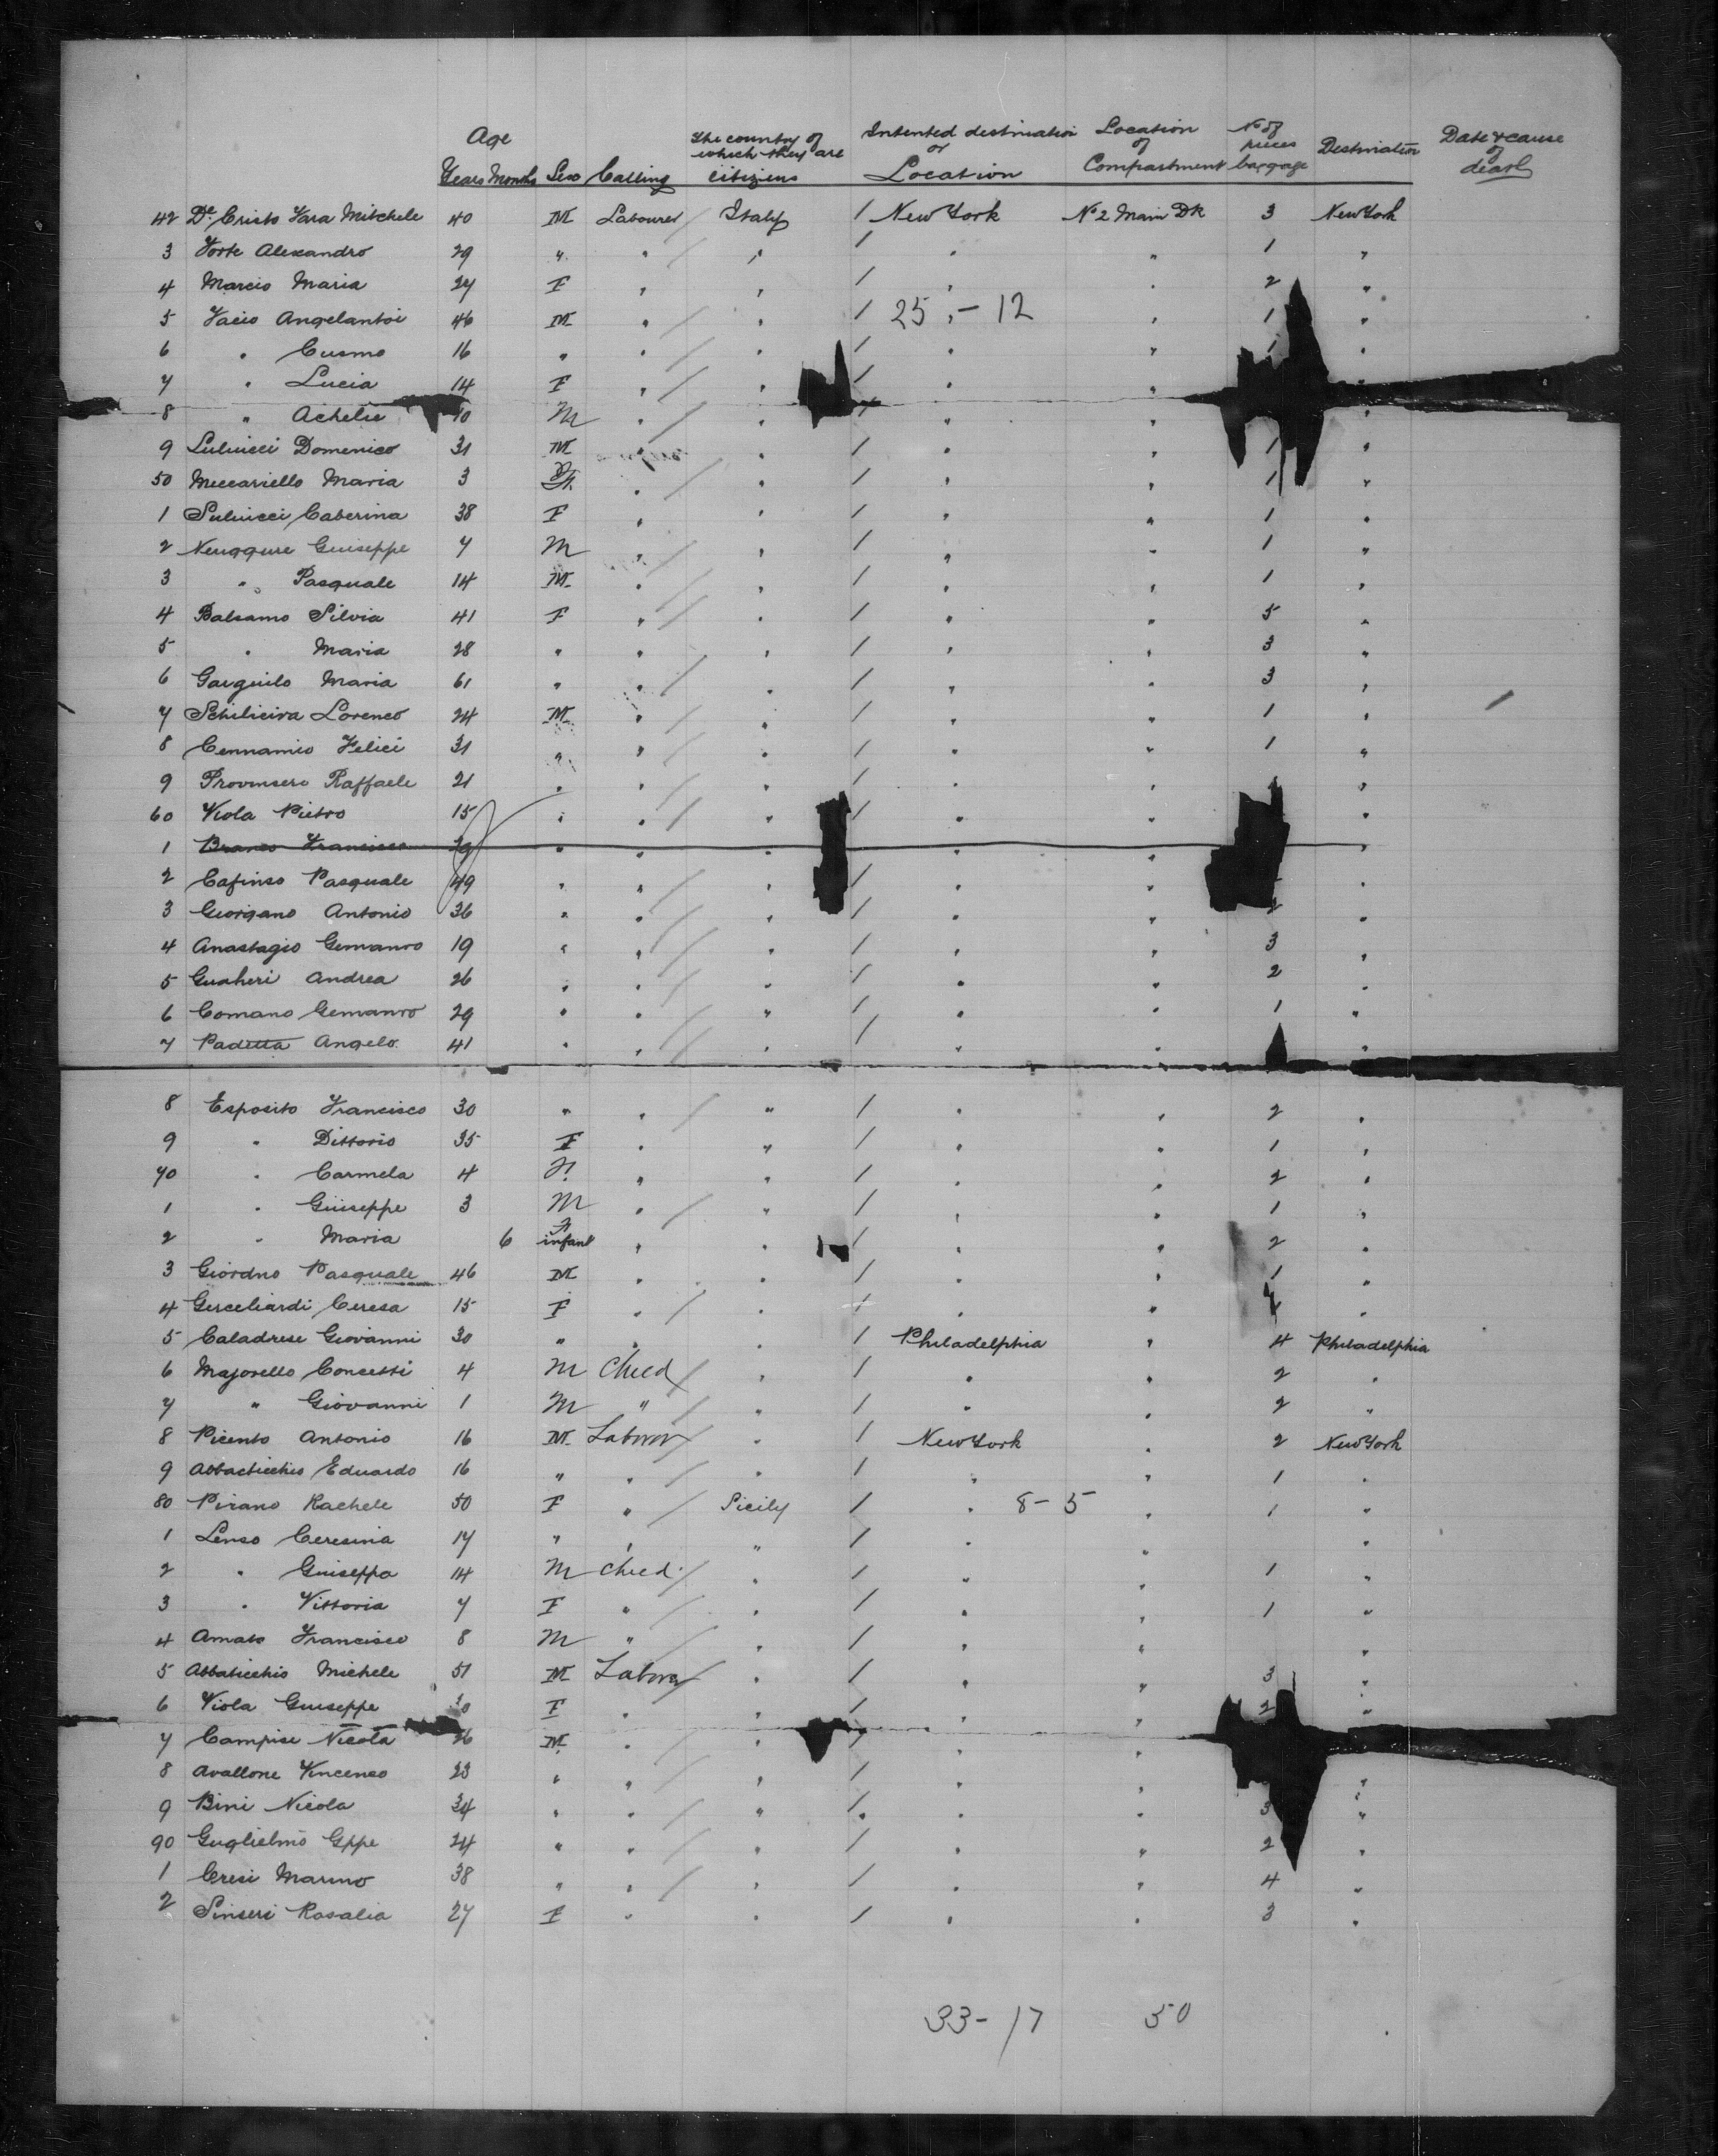 Age The country of Intented destination Location No of Date & cause
which they are or of pieces Destination of
Years Months Sex Calling citiziens Location Compartment baggage death
42 De Cristo Fara Mitchele 40 M Labourer / Italy 1 New York No 2 Main Dk 3 New York
3 Forte Alexandro 29 " " / " 1 " " 1 "
4 Marcio Maria 27 F " " 1 " " 2 "
5 Facio Angelantoi 46 M " / " 1 25 " - 12 " 1 "
6 " Cusmo 16 " " / " 1 " " 1 "
7 " Lucia 14 F " / " 1 " "
8 " Achelie 10 M " / " 1 " "
9 Domenico 31 M " " 1 " " 1 "
50 Meccariello Maria 3 " / " 1 " " 1 "
1 Caterina 38 F " " 1 " " 1 "
2 Guiseppe 7 M " / " 1 " " 1 "
3 " Pasquale 14 M " / " 1 " " 1 "
4 Balsamo Silvia 41 F " / " 1 " " 5 "
5 " Maria 28 " " " 1 " " 3 "
6 Garguilo Maria 61 " " / " 1 " " 3 "
7 Schilicira Lorenco 24 M " / " 1 " " 1 "
8 Cennamio Felici 31 " " / " 1 " " 1 "
9 Provinsero Raffaele 21 " " / " 1 " " "
60 Viola Pietro 15 " " / " 1 " " "
1 Branco Francisco 29 " " " " " "
2 Cafinso Pasquale 49 " " / " 1 " " "
3 Giorgano Antonio 36 " " / " 1 " " 2 "
4 Anastagio Gemanro 19 " " / " 1 " " 3 "
5 Guaheri Andrea 26 " " / " 1 " " 2 "
6 Comano Gemanro 29 " " / " 1 " " 1 "
7 Padetta Angelo 41 " " / " 1 " " "
8 Esposito Francisco 30 " " / " 1 " " 2 "
9 " Dittorio 35 F " " 1 " " 1 "
70 " Carmela 4 F " " 1 " " 2 "
1 " Giuseppe 3 M " / " 1 " " 1 "
2 " Maria 6 F infant " " 1 " " 2 "
3 Giordno Pasquale 46 M " " 1 " " 1 "
4 Gerceliardi Ceresa 15 F " / " 1 " " 4 "
5 Caladrese Giovanni 30 " " " 1 Philadelphia " 4 Philadelphia
6 Majorello Concetti 4 M Chied / " 1 " " 2 "
7 " Giovanni 1 M " / " 1 " " 2 "
8 Picento Antonio 16 M Labour / " 1 New York " 2 New York
9 Abbaticchio Eduardo 16 " " / " 1 " " 1 "
80 Pirano Rachele 50 F " / Sicily 1 " 8 - 5 " 1 "
1 Lenso Ceresina 17 " " " 1 " " "
2 " Guiseppa 14 M chied / " 1 " " 1 "
3 " Vittoria 7 F " / " 1 " " 1 "
4 Amato Francisco 8 M " / " 1 " " "
5 Abbaticchio Michele 51 M Labour / " 1 " " 3 "
6 Viola Guiseppe 30 F " " 1 " " 2 "
7 Campisi Nicola 26 M " / " 1 " "
8 Avallone Vincenco 23 " " / " 1 " " "
9 Bini Nicola 34 " " / " 1 " " 3 "
90 Guglielmo Gppe 24 " " / " 1 " " 2 "
1 Cresi Marino 38 " " / " 1 " " 4 "
2 Sinseri Rosalia 27 F " " 1 " " 3 "
33 - 17 50